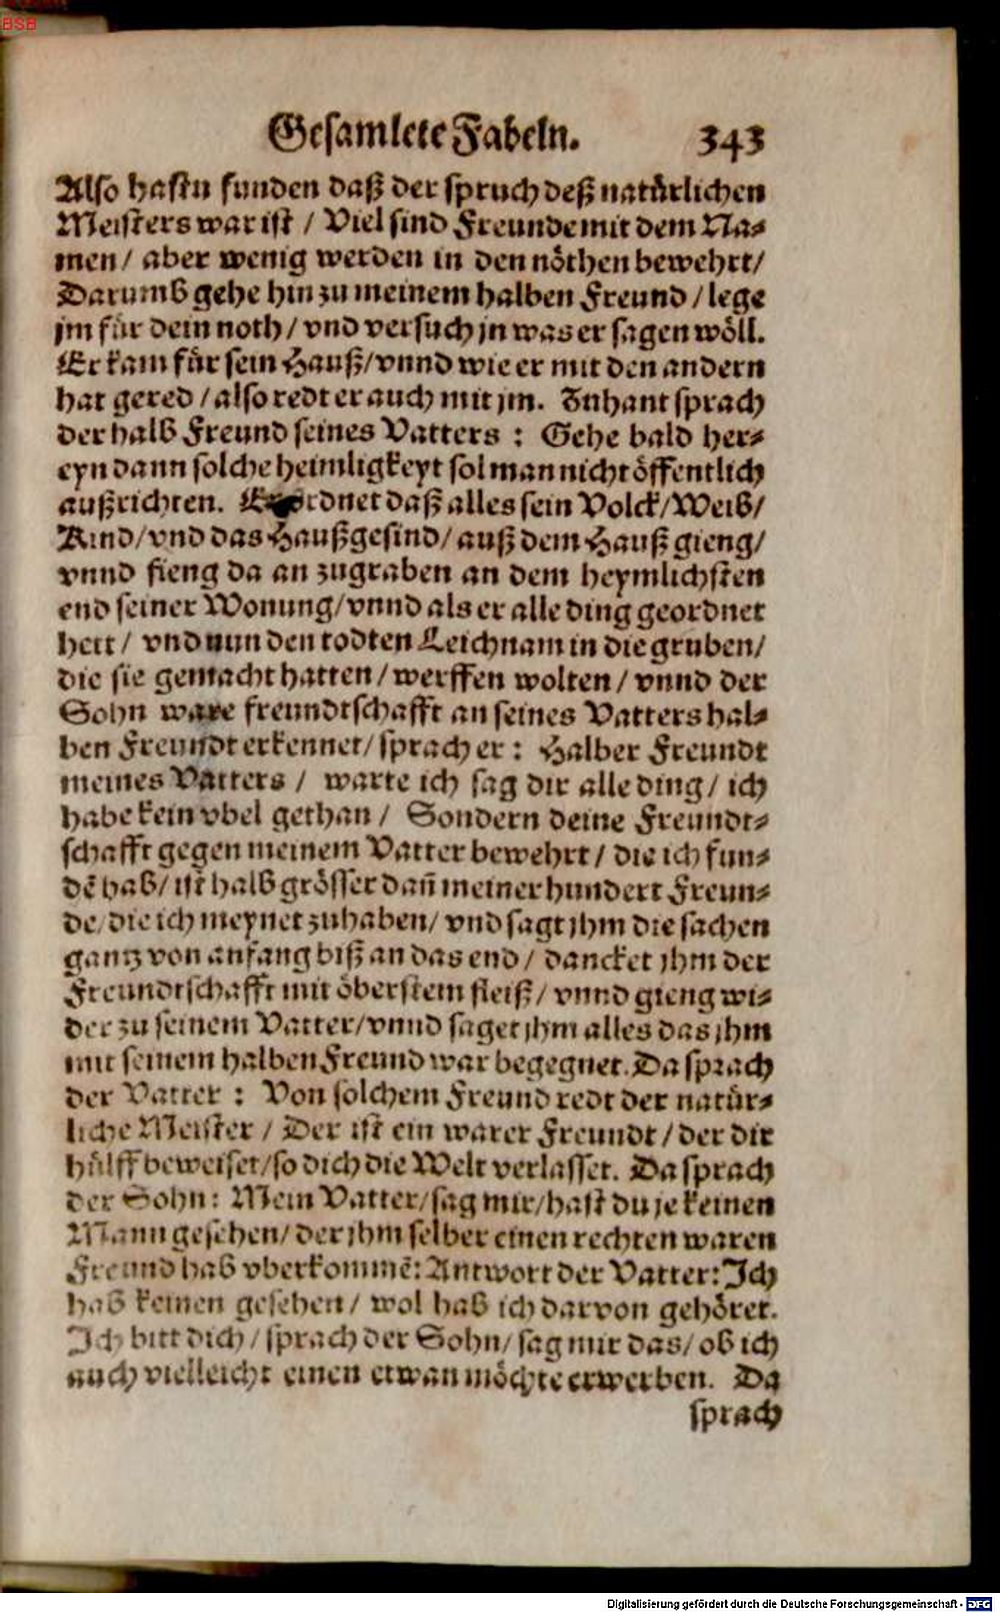 BSB
Gesamlete Fabeln. 343
Also hastu funden daß der spruch deß natürlichen
Meisters war ist / Viel sind Freunde mit dem Na⸗
men / aber wenig werden in den nöthen bewehrt /
Darumb gehe hin zu meinem halben Freund / lege
jm für dein noth / vnd versuch jn was er sagen wöll.
Er kam für sein Hauß / vnnd wie er mit den andern
hat gered / also redt er auch mit jm. Zuhant sprach
der halb Freund seines Vatters : Gehe bald her⸗
eyn dann solche heimligkeyt sol man nicht öffentlich
außrichten. Er ordnet daß alles sein Volck / Weib /
Kind / vnd das Haußgesind / auß dem Hauß gieng /
vnnd fieng da an zugraben an dem heymlichsten
end seiner Wonung / vnnd als er alle ding geordnet
hett / vnd nun den todten Leichnam in die gruben /
die sie gemacht hatten / werffen wolten / vnnd der
Sohn ware freundtschafft an seines Vatters hal⸗
ben Freundt erkennet / sprach er : Halber Freundt
meines Vatters / warte ich sag dir alle ding / ich
habe kein vbel gethan / Sondern deine Freundt⸗
schafft gegen meinem Vatter bewehrt / die ich fun⸗
dẽ hab / ist halb grösser dañ meiner hundert Freun⸗
de / die ich meynet zuhaben / vnd sagt jhm die sachen
gantz von anfang biß an das end / dancket jhm der
Freundtschafft mit öberstem fleiß / vnnd gieng wi⸗
der zu seinem Vatter / vnnd saget jhm alles das jhm
mit seinem halben Freund war begegnet. Da sprach
der Vatter : Von solchem Freund redt der natür⸗
liche Meister / Der ist ein warer Freundt / der dir
hülff beweiset / so dich die Welt verlasset. Da sprach
der Sohn : Mein Vatter / sag mir / hast du je keinen
Mann gesehen / der jhm selber einen rechten waren
Freund hab vberkommẽ : Antwort der Vatter : Ich
hab keinen gesehen / wol hab ich darvon gehöret.
Ich bitt dich / sprach der Sohn / sag mir das / ob ich
auch vielleicht einen etwan möchte erwerben. Da
sprach
Digitalisierung gefördert durch die Deutsche Forschungsgemeinschaft - DFG